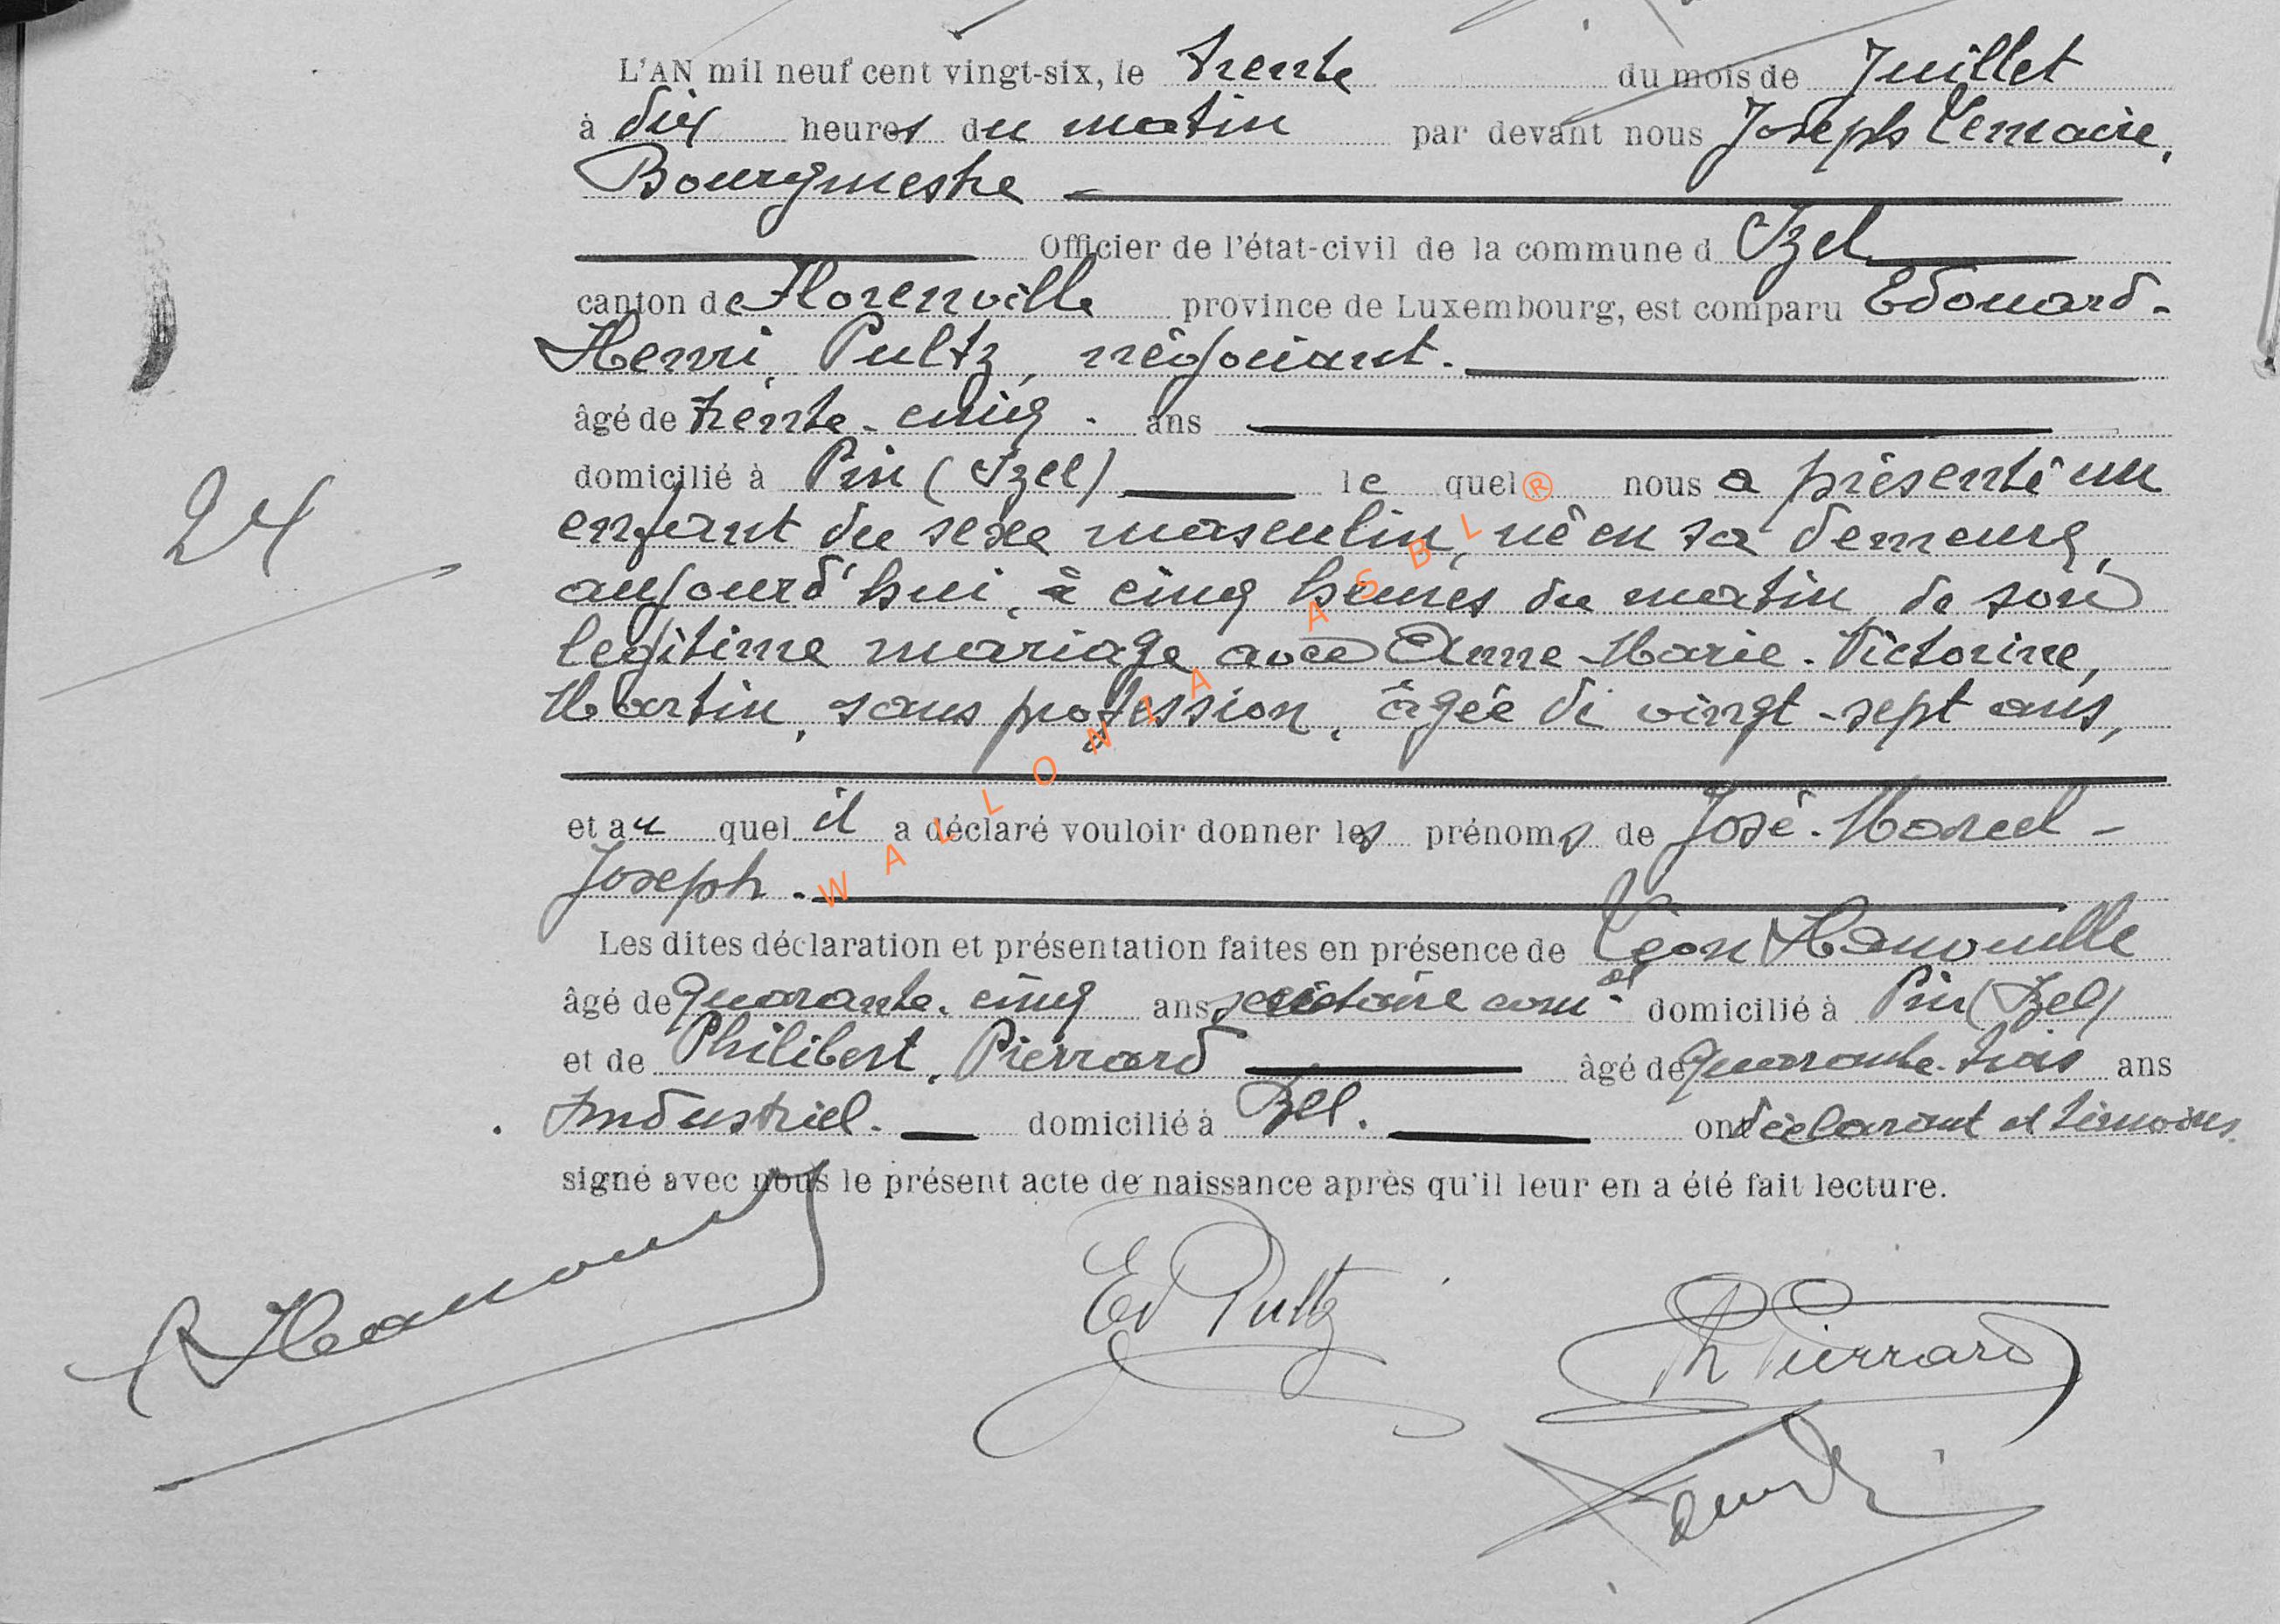 L'AN mil neuf cent vingt-six, le trente du mois de Juillet
à dix heures du matin par devant nous Joseph Lemaire,
Bourgmestre
Officier de l'état-civil de la commune d Izel
canton de Florenville province de Luxembourg, est comparu Edouard-
Henri, Pultz, négociant.
âgé de trente-cinq. ans
domicilié à Pin (Izel) le quel nous a présenté un
enfant du sexe masculin, né en sa demeure,
aujourd'hui, à cinq heures du matin de son
légitime mariage avec Anne-Marie-Victorine,
Martin, sans profession, âgée de vingt-sept ans,
24
et au quel il a déclaré vouloir donner les prénoms de José-Marcel-
Joseph.
Les dites déclaration et présentation faites en présence de Léon
âgé de quarante-cinq ans secrétaire comal domicilié à Pin (Izel)
et de Philibert, Pierrard âgé de quarante-trois ans
Industriel. domicilié à Izel. ont déclarant et témoins
signé avec nous le présent acte de naissance après qu'il leur en a été fait lecture.
Ed Pultz
Ph Pierrard
WALLONIA ASBL ®